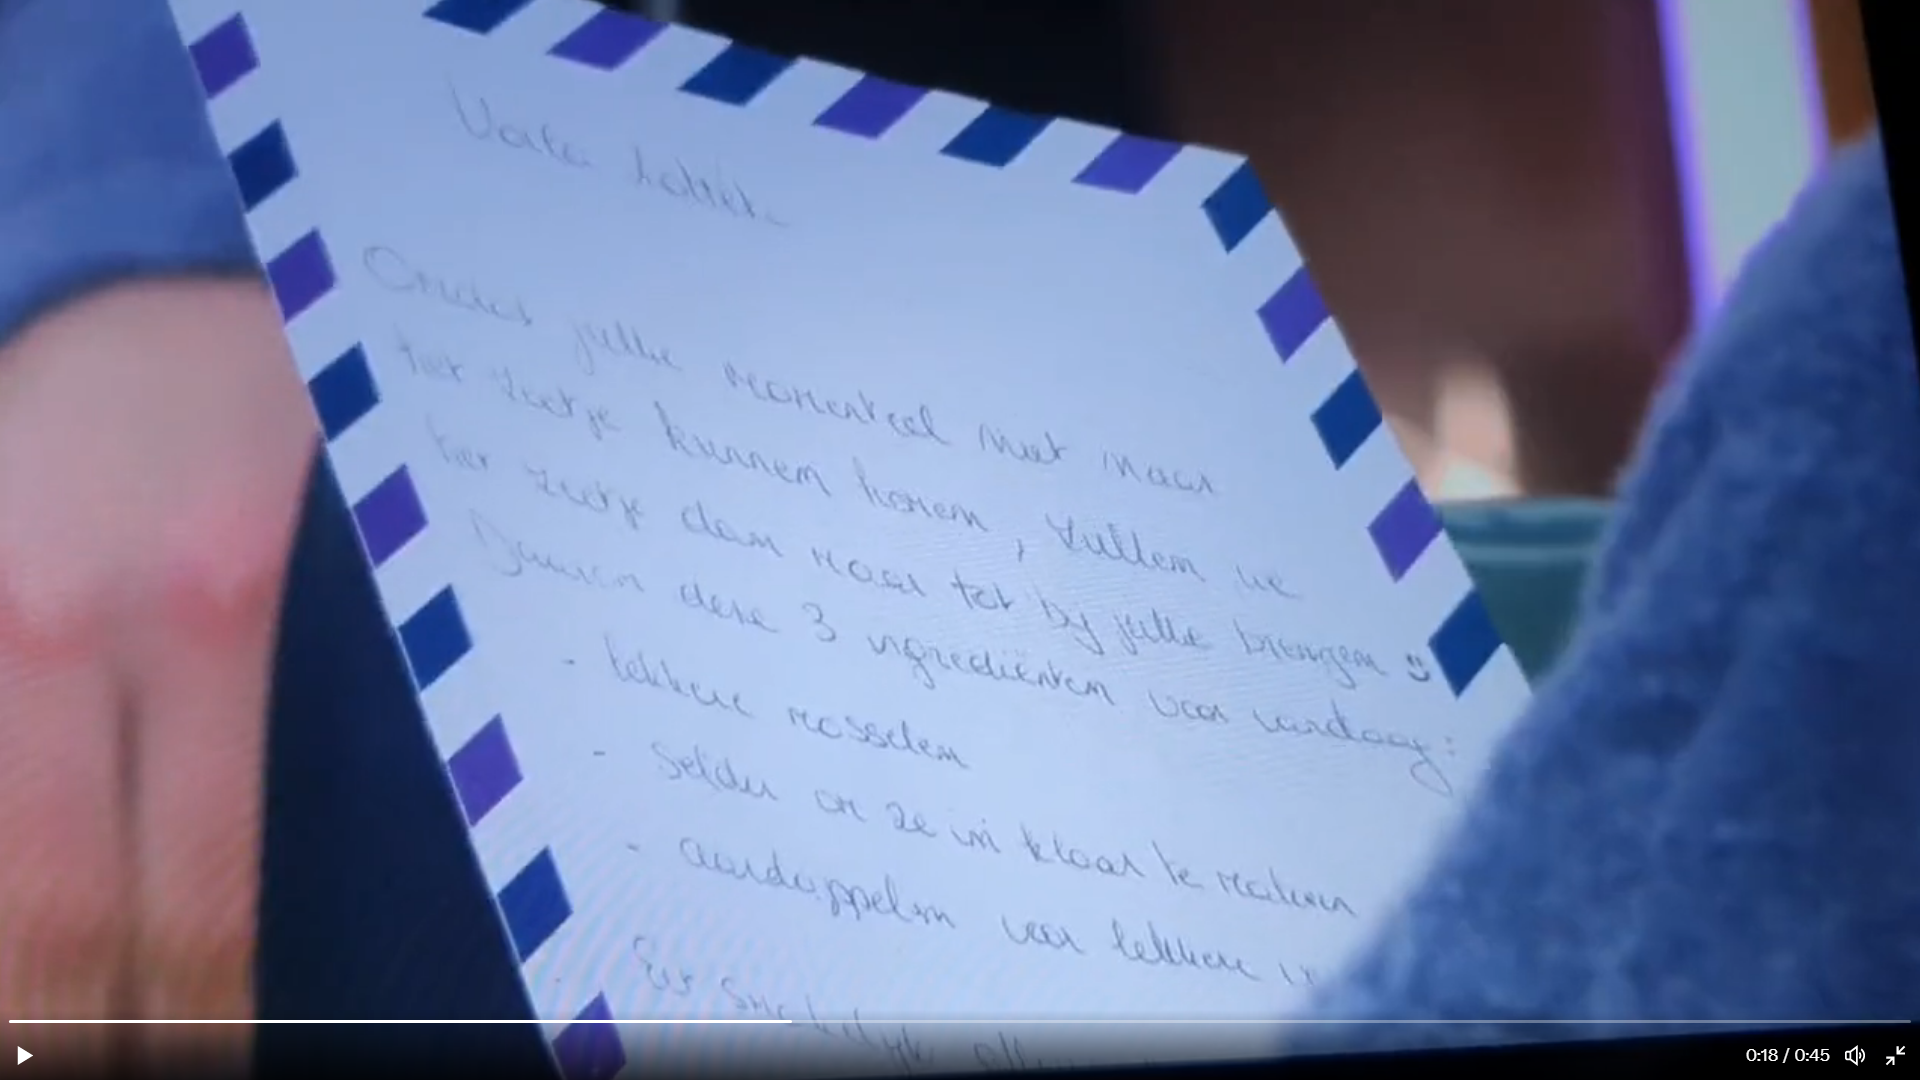 Omdat jullie momenteel niet naar
het zeetje kunnen komen, zullen we
het zeetje dan maar tot bij jullie brengen
Daarom deze 3 ingrediënten voor vandaag:
- lekkere mosselen
- Selder om ze in klaar te maken
- aardappelen voor lekkere
Eet smakelijk
0:18 / 0:45